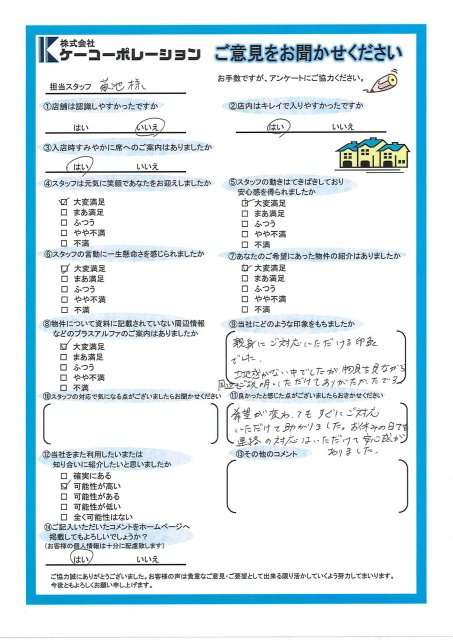 株式会社
ケーコーポレーション
ご意見をお聞かせください
お手数ですが、アンケートにご協力ください。
担当スタッフ 菊池様
①店舗は認識しやすかったですか
はい いいえ
②店内はキレイで入りやすかったですか
はい いいえ
③入店時すみやかに席へのご案内はありましたか
はい いいえ
④スタッフは元気に笑顔であなたをお迎えしましたか
☑ 大変満足
□ まあ満足
□ ふつう
□ やや不満
□ 不満
⑤スタッフの動きはてきぱきしており
安心感を得られましたか
☑ 大変満足
□ まあ満足
□ ふつう
□ やや不満
□ 不満
⑥スタッフの言動に一生懸命さを感じられましたか
☑ 大変満足
□ まあ満足
□ ふつう
□ やや不満
□ 不満
⑦あなたのご希望にあった物件の紹介はありましたか
☑ 大変満足
□ まあ満足
□ ふつう
□ やや不満
□ 不満
⑧物件について資料に記載されていない周辺情報
などのプラスアルファのご案内はありましたか
☑ 大変満足
□ まあ満足
□ ふつう
□ やや不満
□ 不満
⑨当社にどのような印象をもちましたか
親身にご対応いただける印象
でした。
土地感がない中でしたが、物見を見ながら
周辺もご説明いただけてありがたかったです
⑩スタッフの対応で気になる点がございましたらお聞かせください
⑪良かったと感じた点がございましたらおきかせください
希望が変わってもすぐにご対応
いただけて助かりました。お休みの日でも
連絡の対応はいただけて安心感が
ありました。
⑫当社をまた利用したいまたは
知り合いに紹介したいと思いましたか
□ 確実にある
☑ 可能性が高い
□ 可能性がある
□ 可能性が低い
□ 全く可能性はない
⑬その他のコメント
⑭ご記入いただいたコメントをホームページへ
掲載してもよろしいでしょうか?
(お客様の個人情報は十分に配慮致します)
はい いいえ
ご協力誠にありがとうございました。お客様の声は貴重なご意見・ご要望として出来る限り活かしていくよう努力してまいります。
今後ともよろしくお願い申し上げます。